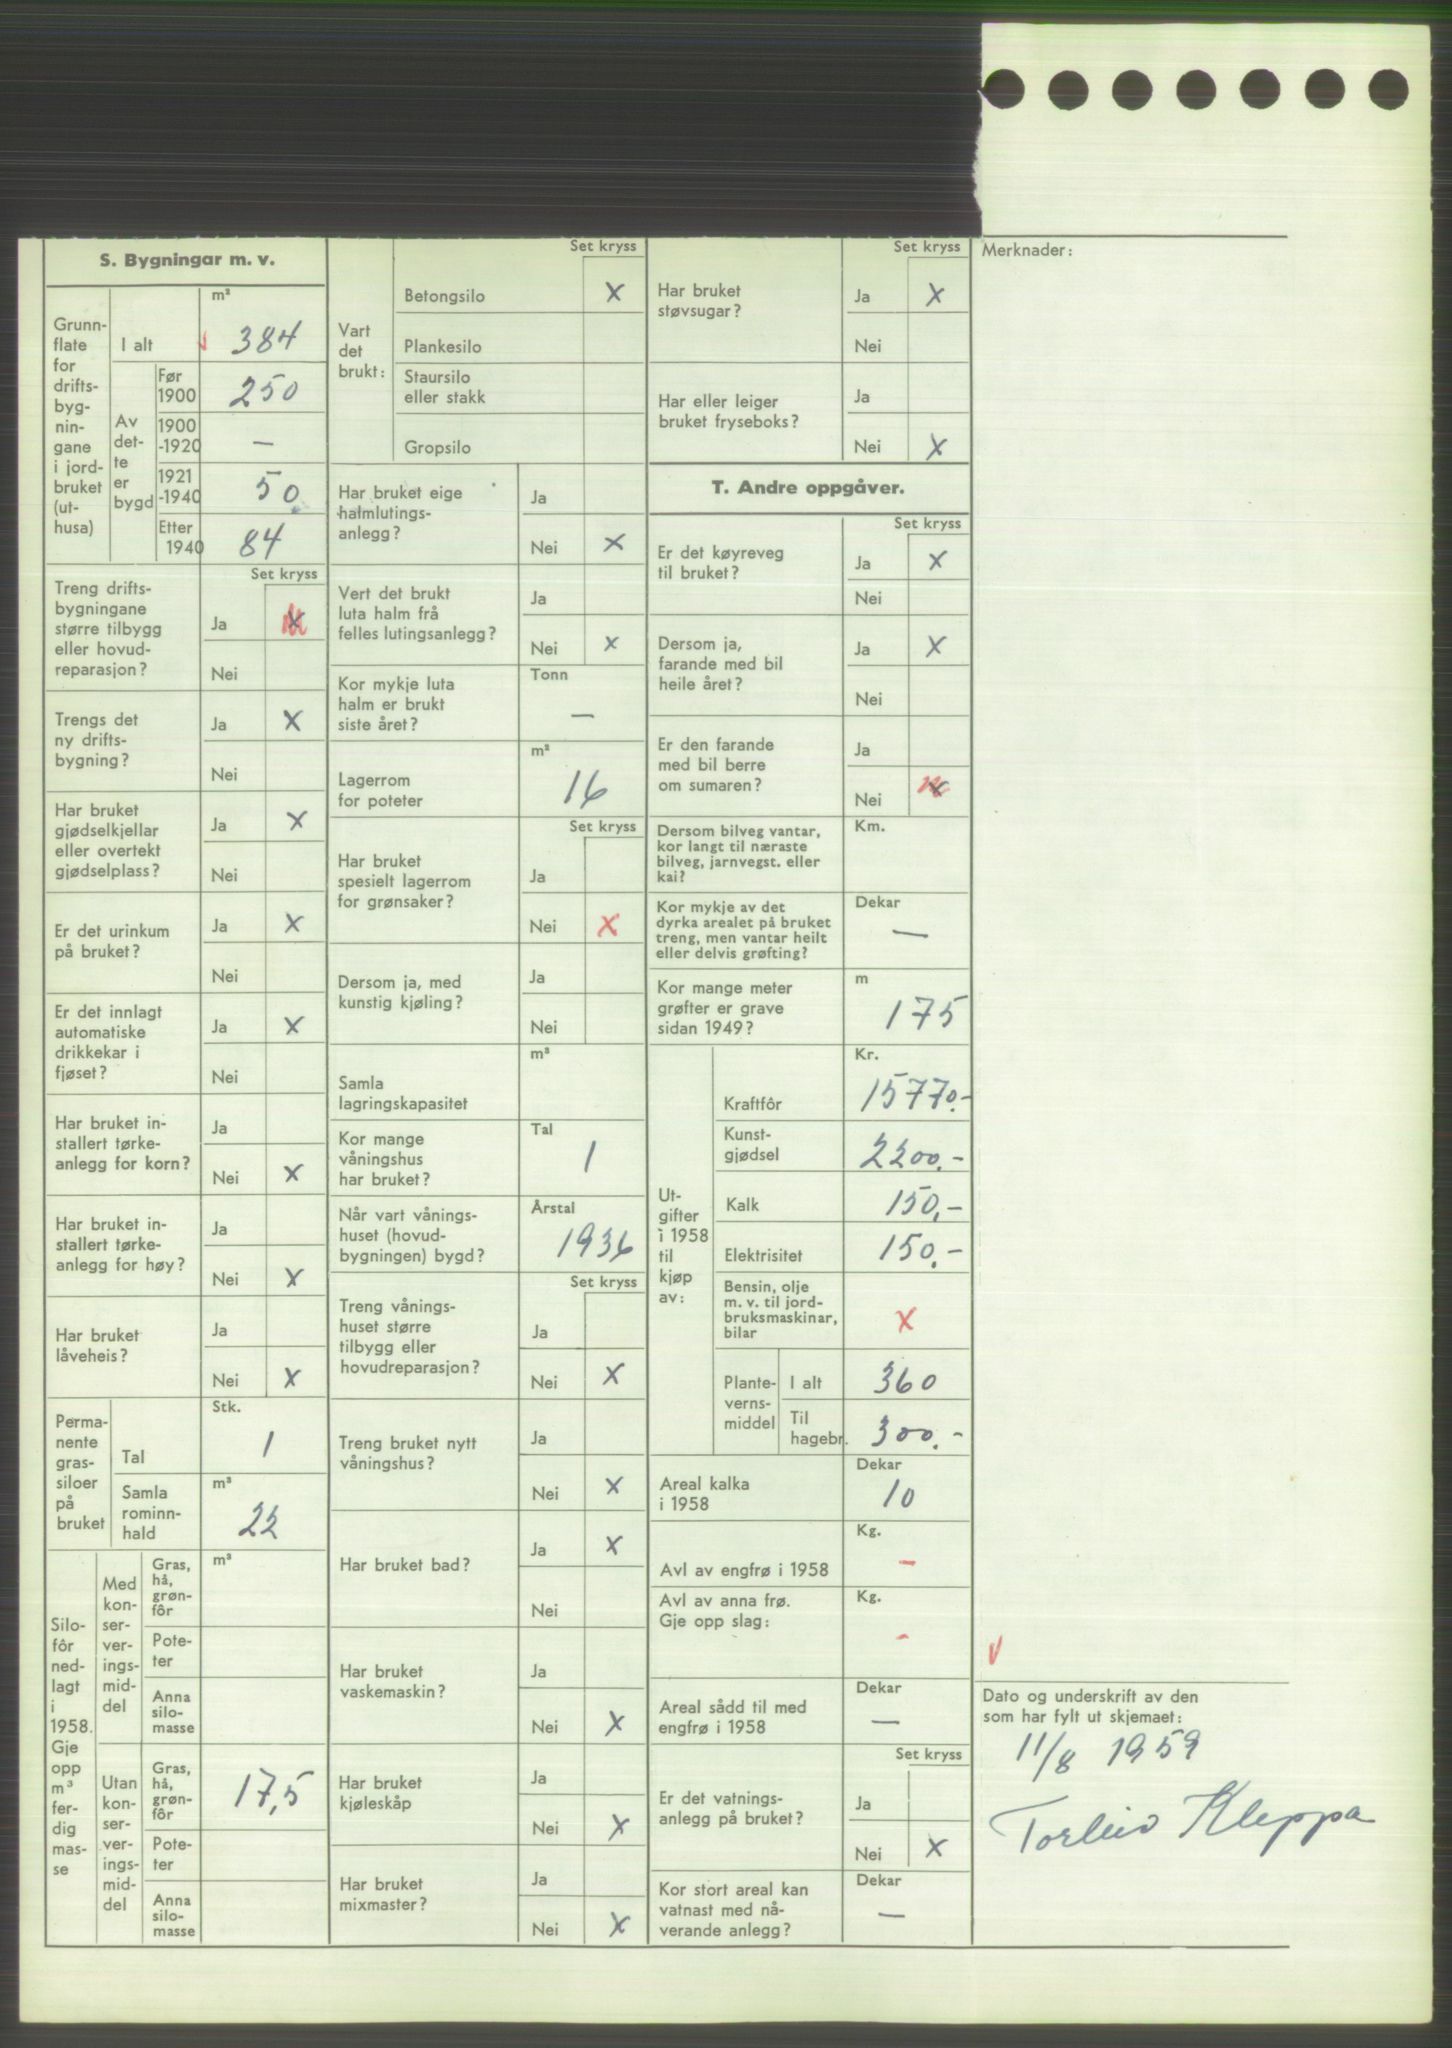 S. Bygningar m. v.
Grunn-
flate
for
drifts-
byg-
nin-
gane
i jord-
bruket
(ut-
husa)
m²
I alt 384
Av
det-
te
er
bygd
Før
1900 250
1900
-1920 —
1921
-1940 50
Etter
1940 84
Set kryss
Treng drifts-
bygningane
større tilbygg
eller hovud-
reparasjon?
Ja x
Nei
Trengs det
ny drifts-
bygning?
Ja x
Nei
Har bruket
gjødselkjellar
eller overtekt
gjødselplass?
Ja x
Nei
Er det urinkum
på bruket?
Ja x
Nei
Er det innlagt
automatiske
drikkekar i
fjøset?
Ja x
Nei
Har bruket in-
stallert tørke-
anlegg for korn?
Ja
Nei x
Har bruket in-
stallert tørke-
anlegg for høy?
Ja
Nei x
Har bruket
låveheis?
Ja
Nei x
Perma-
nente
gras-
siloer
på
bruket
Stk.
Tal 1
m³
Samla
rominn-
hald 22
Silo-
fôr
ned-
lagt
i
1958.
Gje
opp
m³
fer-
dig
mas-
se
Med
kon-
ser-
ver-
ings-
mid-
del
m³
Gras,
hå,
grøn-
fôr
Pote-
ter
Anna
silo-
masse
Utan
kon-
ser-
ver-
ings-
mid-
del
Gras,
hå,
grøn-
fôr 17,5
Pote-
ter
Anna
silo-
masse
Set kryss
Vart
det
brukt:
Betongsilo x
Plankesilo
Staursilo
eller stakk
Gropsilo
Har bruket eige
halmlutings-
anlegg?
Ja
Nei x
Vert det brukt
luta halm frå
felles lutingsanlegg?
Ja
Nei x
Kor mykje luta
halm er brukt
siste året?
Tonn
—
Lagerrom
for poteter
m²
16
Set kryss
Har bruket
spesielt lagerrom
for grønsaker?
Ja
Nei x
Dersom ja, med
kunstig kjøling?
Ja
Nei
Samla
lagringskapasitet
m³
Kor mange
våningshus
har bruket?
Tal
1
Når vart vånings-
huset (hovud-
bygningen) bygd?
Årstal
1936
Set kryss
Treng vånings-
huset større
tilbygg eller
hovudreparasjon?
Ja
Nei x
Treng bruket nytt
våningshus?
Ja
Nei x
Har bruket bad?
Ja x
Nei
Har bruket
vaskemaskin?
Ja
Nei x
Har bruket
kjøleskåp
Ja
Nei x
Har bruket
mixmaster?
Ja
Nei x
Set kryss
Har bruket
støvsugar?
Ja x
Nei
Har eller leiger
bruket fryseboks?
Ja
Nei x
T. Andre oppgåver.
Set kryss
Er det køyreveg
til bruket?
Ja x
Nei
Dersom ja,
farande med bil
heile året?
Ja x
Nei
Er den farande
med bil berre
om sumaren?
Ja
Nei x
Dersom bilveg vantar,
kor langt til næraste
bilveg, jarnvegst. eller
kai?
Km.
Kor mykje av det
dyrka arealet på bruket
treng, men vantar heilt
eller delvis grøfting?
Dekar
—
Kor mange meter
grøfter er grave
sidan 1949?
m
175
Ut-
gifter
i 1958
til
kjøp
av:
Kr.
Kraftfôr 15770.-
Kunst-
gjødsel 2200.-
Kalk 150,-
Elektrisitet 150.-
Bensin, olje
m. v. til jord-
bruksmaskinar,
bilar x
Plante-
verns-
middel
I alt 360
Til
hagebr. 300.-
Areal kalka
i 1958
Dekar
10
Avl av engfrø i 1958
Kg.
—
Avl av anna frø.
Gje opp slag:
Kg.
-
Areal sådd til med
engfrø i 1958
Dekar
—
Set kryss
Er det vatnings-
anlegg på bruket?
Ja
Nei x
Kor stort areal kan
vatnast med nå-
verande anlegg?
Dekar
—
Merknader:
Dato og underskrift av den
som har fylt ut skjemaet:
11/8 1959
Torleiv Kleppa